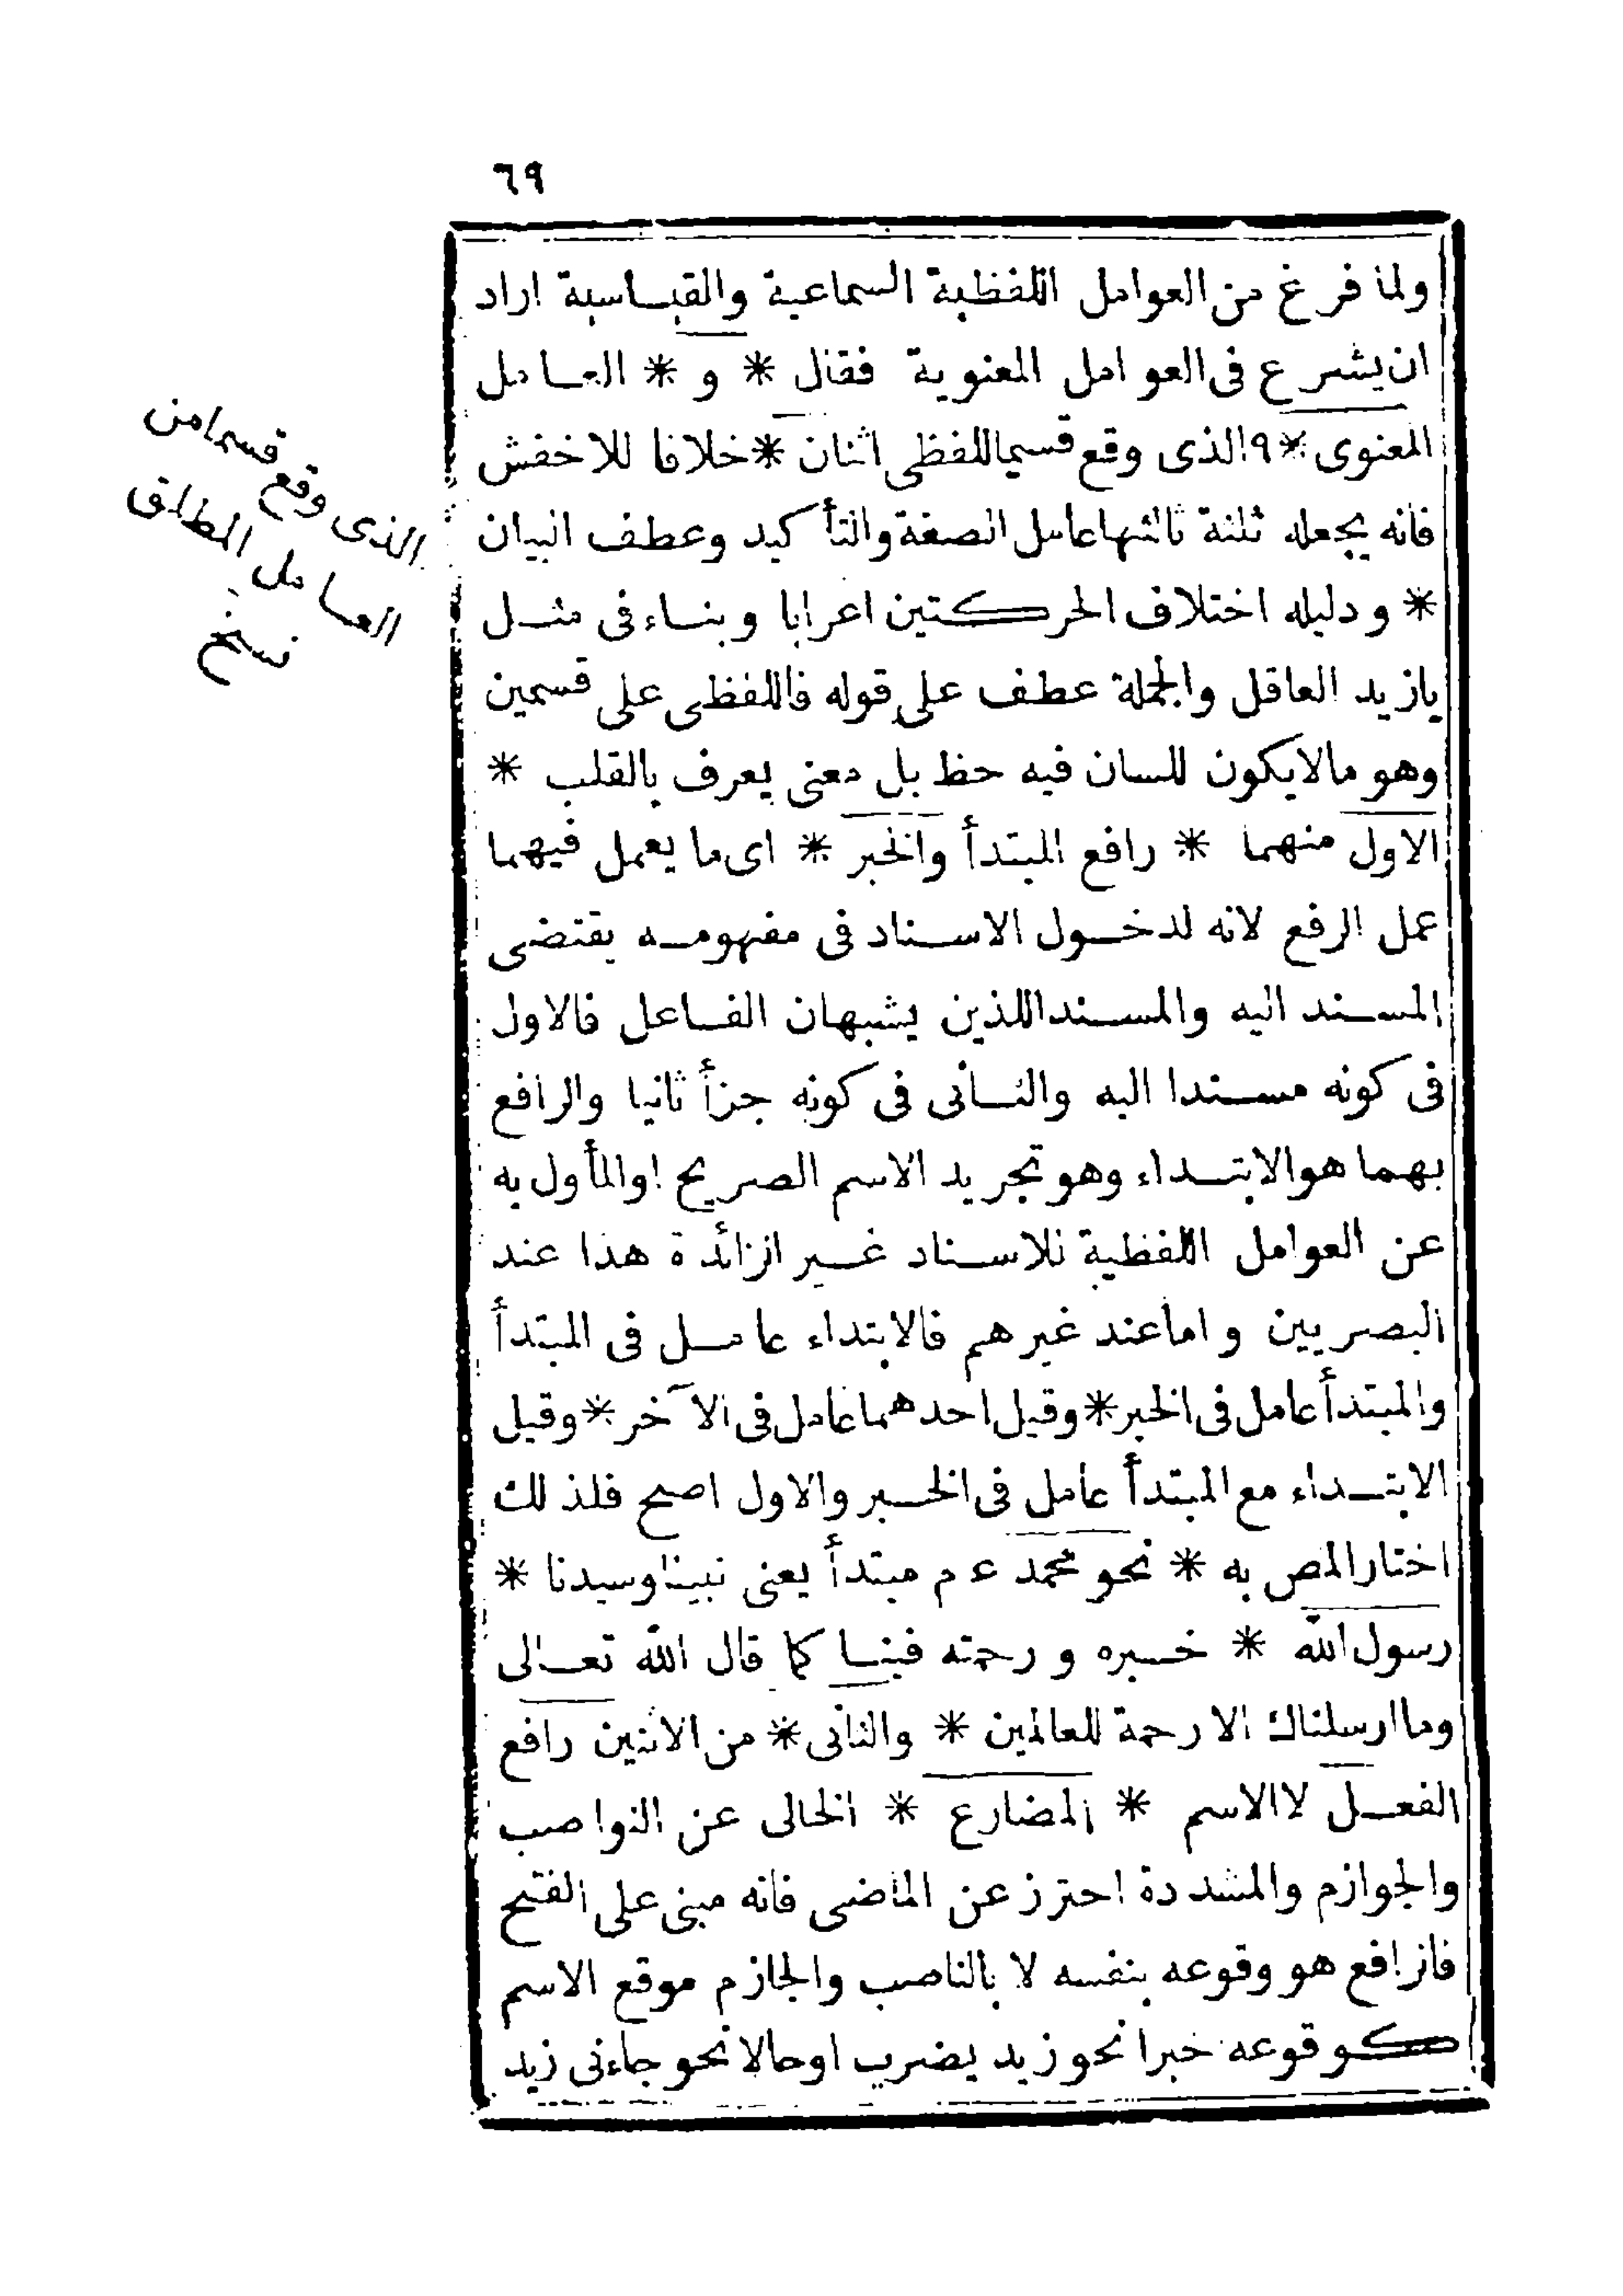 ٦٩
ولما فرغ من العوامل اللفظية السماعية والقياسية اراد
ان يشرع فى العوامل المعنوية فقال * و * العامل
المعنوى * ٩ الذى وقع قسيما للفظى اثنان * خلافا للاخفش
فانه يجعله ثلثة ثالثها عامل الصفة والتأكيد وعطف البيان
* ودليله اختلاف الحركتين اعرابا وبناء فى مثل
يازيد العاقل والجملة عطف على قوله فاللفظى على قسمين
وهو مالايكون للسان فيه حظ بل معنى يعرف بالقلب *
الاول منهما * رافع المبتدأ والخبر * اى ما يعمل فيهما
عمل الرفع لانه لدخول الاسناد فى مفهومه يقتضى
المسند اليه والمسند اللذين يشبهان الفاعل فالاول
فى كونه مسندا اليه والثانى فى كونه جزأ ثانيا والرافع
بهما هو الابتداء وهو تجريد الاسم الصريح او المأول به
عن العوامل اللفظية للاسناد غير الزائدة هذا عند
البصريين واما عند غيرهم فالابتداء عامل فى المبتدأ
والمبتدأ عامل فى الخبر * وقيل احدهما عامل فى الآخر * وقيل
الابتداء مع المبتدأ عامل فى الخبر والاول اصح فلذلك
اختار المص به * نحو محمد ع م مبتدأ يعنى نبينا وسيدنا *
رسول الله * خبره ورحمته فينا كما قال الله تعالى
وما ارسلناك الا رحمة للعالمين * والثانى * من الاثنين رافع
الفعل لا الاسم * المضارع * الخالى عن النواصب
والجوازم والمشددة احترز عن الماضى فانه مبنى على الفتح
فالرافع هو وقوعه بنفسه لا بالناصب والجازم موقع الاسم
كوقوعه خبرا نحو زيد يضرب اوحالا نحو جاءنى زيد
الذى وقع قسما من
العامل المطلق
نسخ